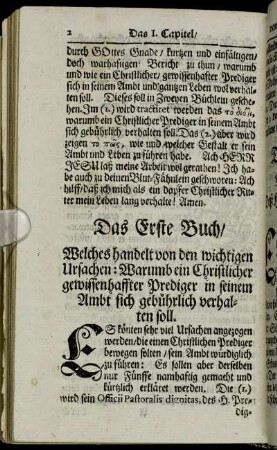 2 Das I. Capitel/
durch GOttes Gnade/ kurtzen und einfältigen/
doch warhafftigen Bericht zu thun/ warumb
und wie ein Christlicher/ gewissenhafter Prediger
sich in seinem Ambt und gantzen Leben wol verhal-
ten soll. Dieses soll in Zweyen Büchlein gesche-
hen. Im (1.) wird tractiret werden das το διότι,
warumb ein Christlicher Prediger in seinem Ambt
sich gebührlich verhalten soll. Das (2.) aber wird
zeigen το πῶς, wie und welcher Gestalt er sein
Ambt und Leben zu führen habe. Ach HERR
JESU laß meine Arbeit wol gerathen! Ich ha-
be auch zu deinem Fähnlein geschworen: Ach
hilff/ daß ich mich als ein dapfer Christlicher Rit-
ter mein Leben lang verhalte! Amen.
Das Erste Buch/
Welches handelt von den wichtigen
Ursachen: Warumb ein Christlicher
gewissenhaffter Prediger in seinem
Ambt sich gebührlich verhal-
ten soll.
ES könten sehr viel Ursachen angezogen
werden/ die einen Christlichen Prediger
bewegen solten/ sein Ambt würdiglich
zu führen: Es sollen aber derselben
nur Fünffe namhafftig gemacht und
kürtzlich erkläret werden. Die (1.)
wird sein Officii Pastoralis dignitas, des H. Pre-
dig-